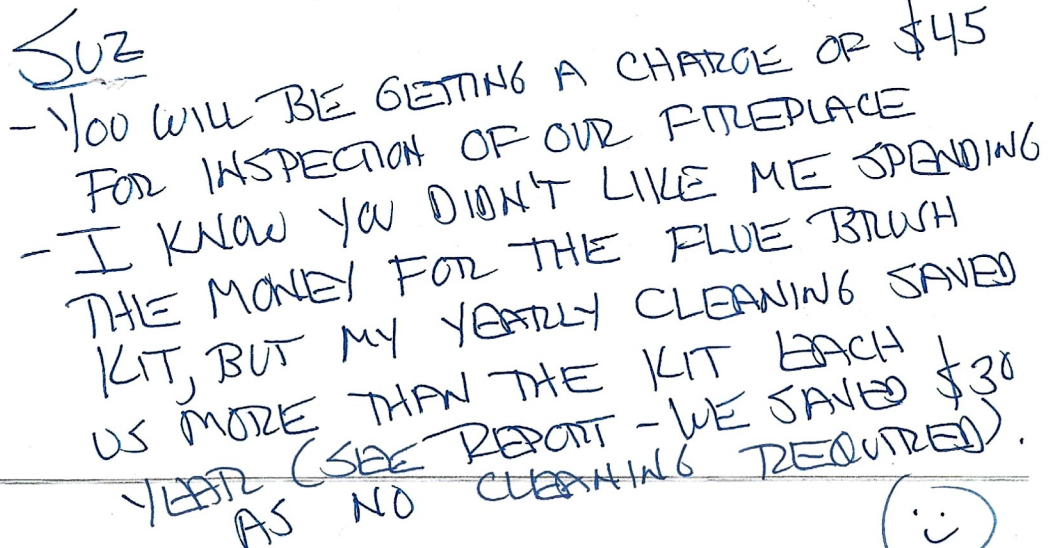 SUZ
- YOU WILL BE GETTING A CHARGE OF $45
FOR INSPECTION OF OUR FIREPLACE
- I KNOW YOU DIDN'T LIKE ME SPENDING
THE MONEY FOR THE FLUE BRUSH
KIT, BUT MY YEARLY CLEANING SAVED
US MORE THAN THE KIT EACH
YEAR (SEE REPORT - WE SAVED $30
AS NO CLEANING REQUIRED).